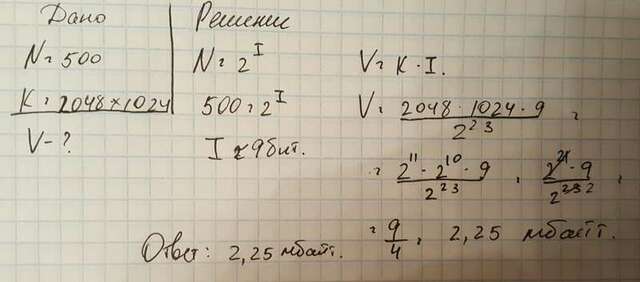 Дано
N = 500
K = 2048 × 1024
V - ?
Решение
N = 2^I
500 = 2^I
I ≈ 9 бит.
V = K · I.
V = (2048 · 1024 · 9) / 2^23 =
= (2^11 · 2^10 · 9) / 2^23 = (2^21 · 9) / 2^23 2 =
= 9/4 = 2,25 мбайт.
Ответ: 2,25 мбайт.